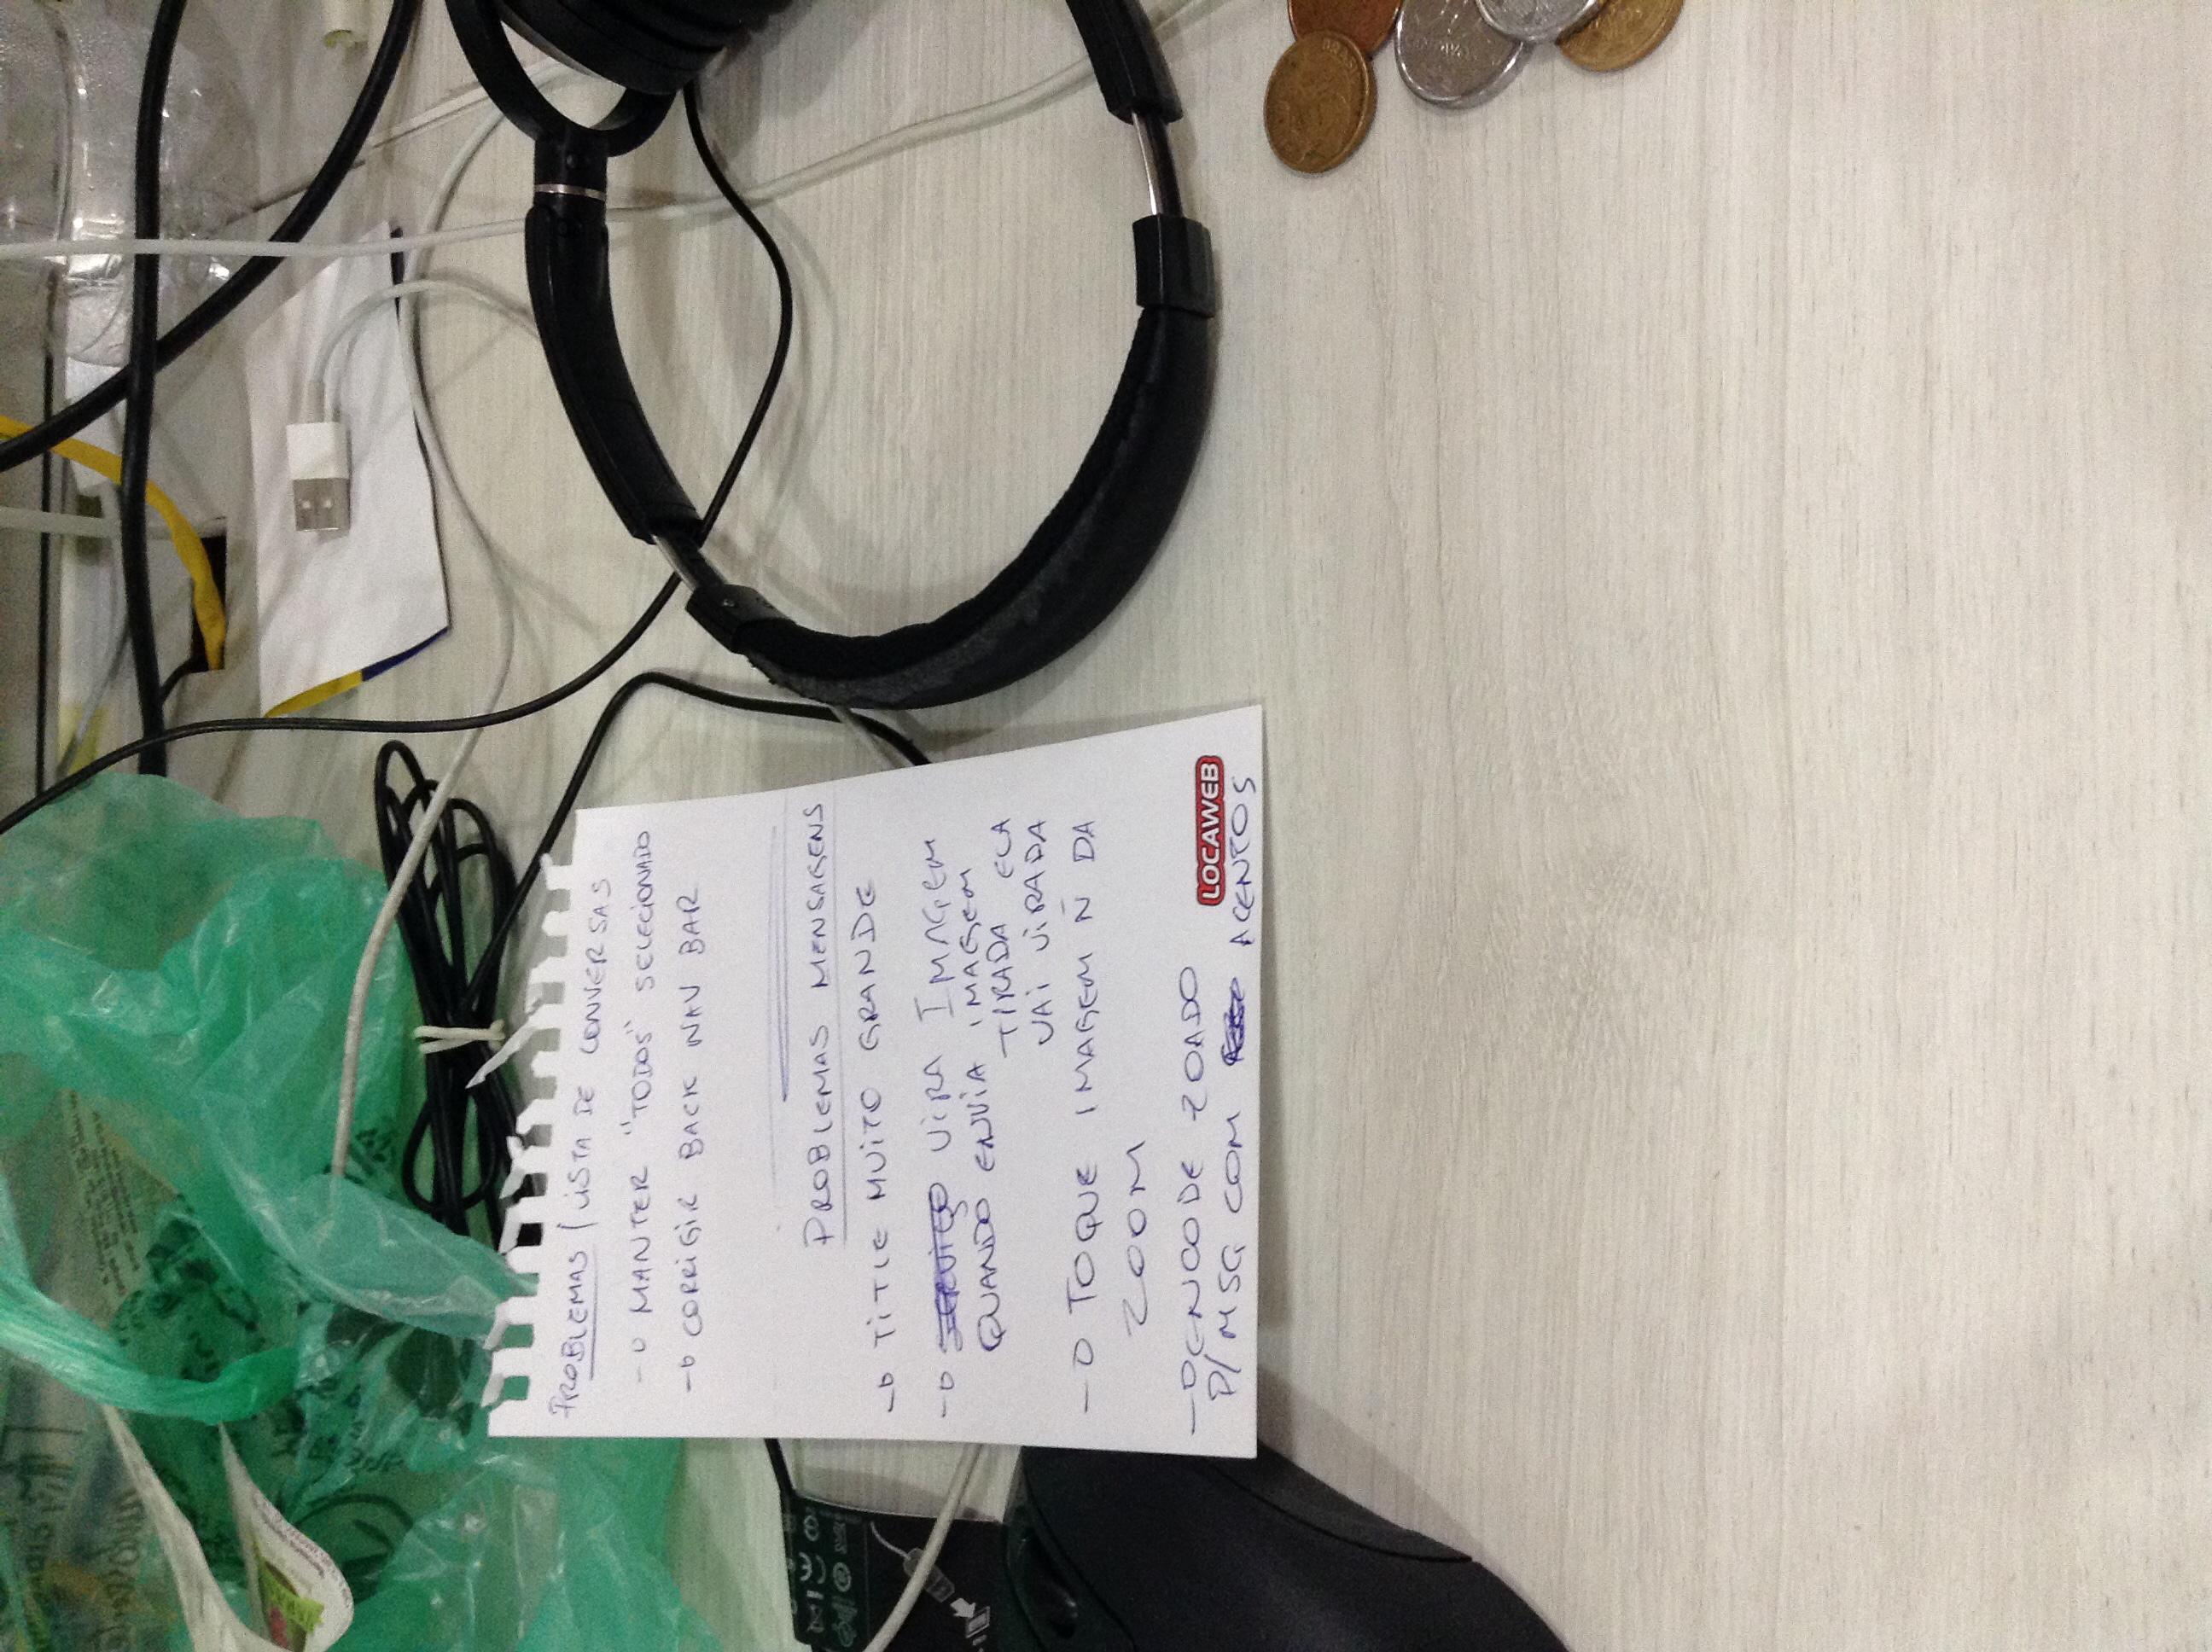 PROBLEMAS / LISTA DE CONVERSAS
→ MANTER "TODOS" SELECIONADO
→ CORRIGIR BACK NAV BAR
PROBLEMAS MENSAGENS
→ TITLE MUITO GRANDE
→ VIRA IMAGEM
QUANDO ENVIA IMAGEM
TIRADA ELA
JAI VIRADA
→ TOQUE IMAGEM Ñ DA
ZOOM
→ ENCODE ZOADO
P/ MSG COM ACENTOS
LOCAWEB